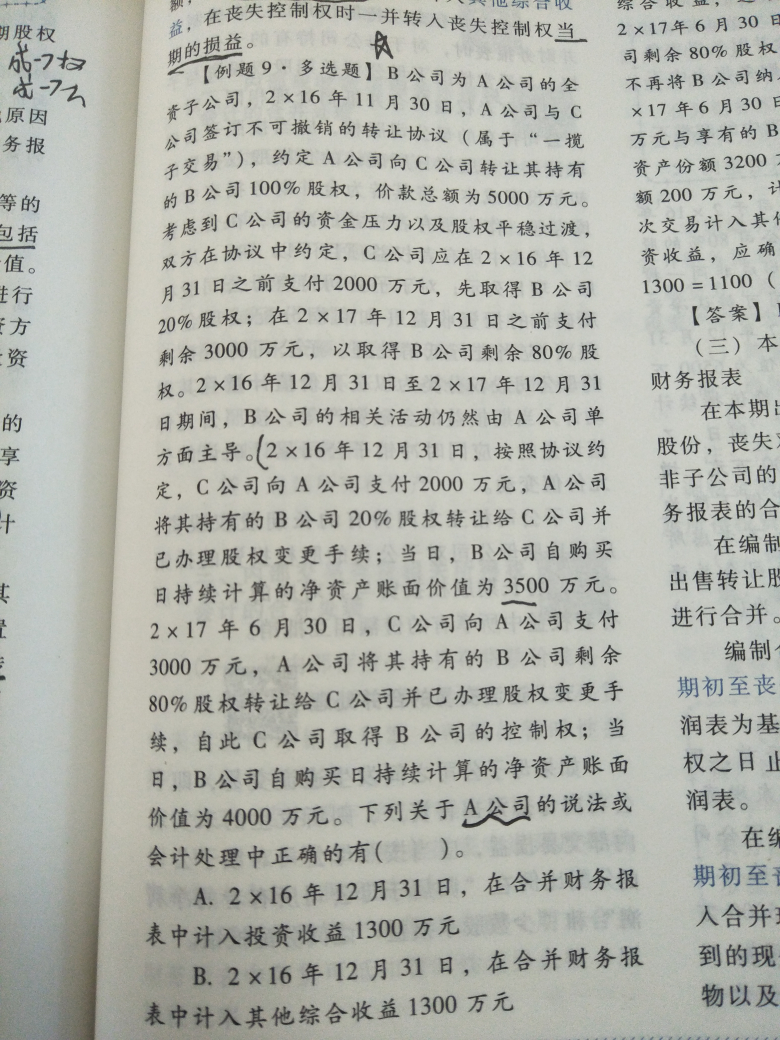 期股权
原因
务报
等的
包括
值。
进行
资方
投资
的
享
资
计
其
置
益，在丧失控制权时一并转入丧失控制权当
期的损益。
【例题9·多选题】B公司为A公司的全
资子公司，2×16年11月30日，A公司与C
公司签订不可撤销的转让协议（属于“一揽
子交易”），约定A公司向C公司转让其持有
的B公司100%股权，价款总额为5000万元。
考虑到C公司的资金压力以及股权平稳过渡，
双方在协议中约定，C公司应在2×16年12
月31日之前支付2000万元，先取得B公司
20%股权；在2×17年12月31日之前支付
剩余3000万元，以取得B公司剩余80%股
权。2×16年12月31日至2×17年12月31
日期间，B公司的相关活动仍然由A公司单
方面主导。2×16年12月31日，按照协议约
定，C公司向A公司支付2000万元，A公司
将其持有的B公司20%股权转让给C公司并
已办理股权变更手续；当日，B公司自购买
日持续计算的净资产账面价值为3500万元。
2×17年6月30日，C公司向A公司支付
3000万元，A公司将其持有的B公司剩余
80%股权转让给C公司并已办理股权变更手
续，自此C公司取得B公司的控制权；当
日，B公司自购买日持续计算的净资产账面
价值为4000万元。下列关于A公司的说法或
会计处理中正确的有(　　)。
A. 2×16年12月31日，在合并财务报
表中计入投资收益1300万元
B. 2×16年12月31日，在合并财务报
表中计入其他综合收益1300万元
综合收益，
2×17年6月30日
司剩余80%股权
不再将B公司纳
×17年6月30日
万元与享有的B
资产份额3200
额200万元，计
次交易计入其
资收益，应确
1300=1100（
【答案】
（三）本
财务报表
在本期
股份，丧失
非子公司的
务报表的合
在编制
出售转让股
进行合并。
编制
期初至丧
润表为基
权之日止
润表。
在编
期初至
入合并
到的现
物以及